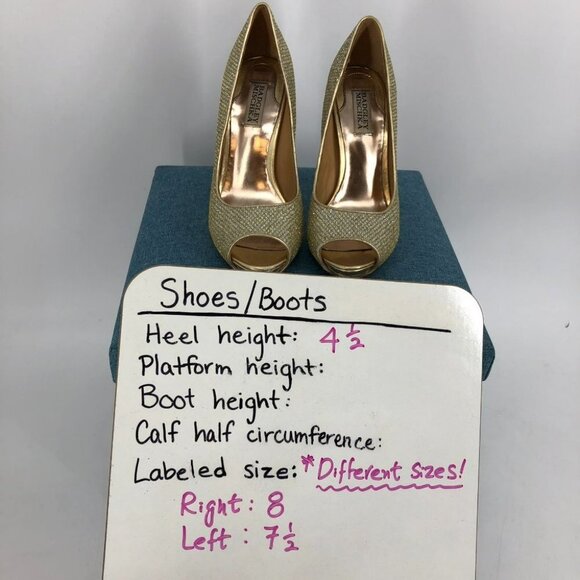 BADGLEY
MISCHKA
BADGLEY
MISCHKA
Shoes/Boots
Heel height: 4 1/2
Platform height:
Boot height:
Calf half circumference:
Labeled size: *Different sizes!
Right: 8
Left: 7 1/2